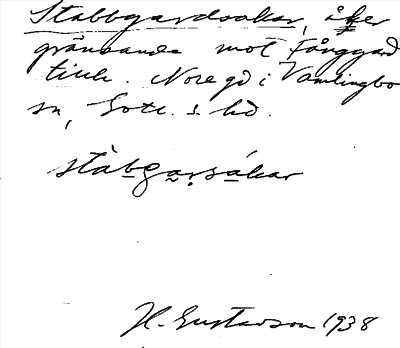 Stabbgardsåkar, åker
gränsande mot Fånggard
till. Nore gd i Vamlingbo
sn, Gotl. s. hd.
stàbgaṛsákar
H. Gustavson 1938